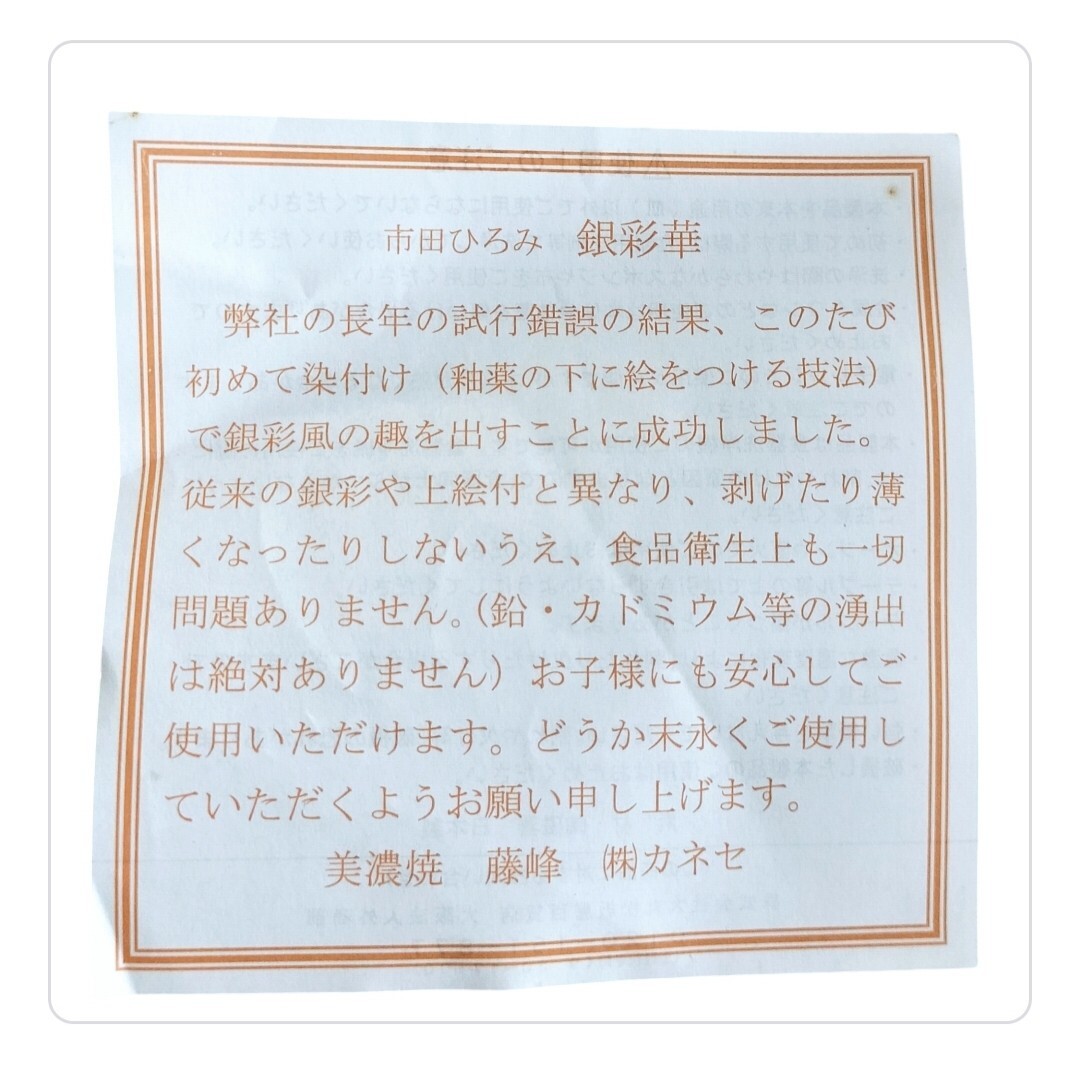 市田ひろみ 銀彩華
弊社の長年の試行錯誤の結果、このたび
初めて染付け（釉薬の下に絵をつける技法）
で銀彩風の趣を出すことに成功しました。
従来の銀彩や上絵付と異なり、剥げたり薄
くなったりしないうえ、食品衛生上も一切
問題ありません。(鉛・カドミウム等の湧出
は絶対ありません）お子様にも安心してご
使用いただけます。どうか末永くご使用し
ていただくようお願い申し上げます。
美濃焼 藤峰 ㈱カネセ